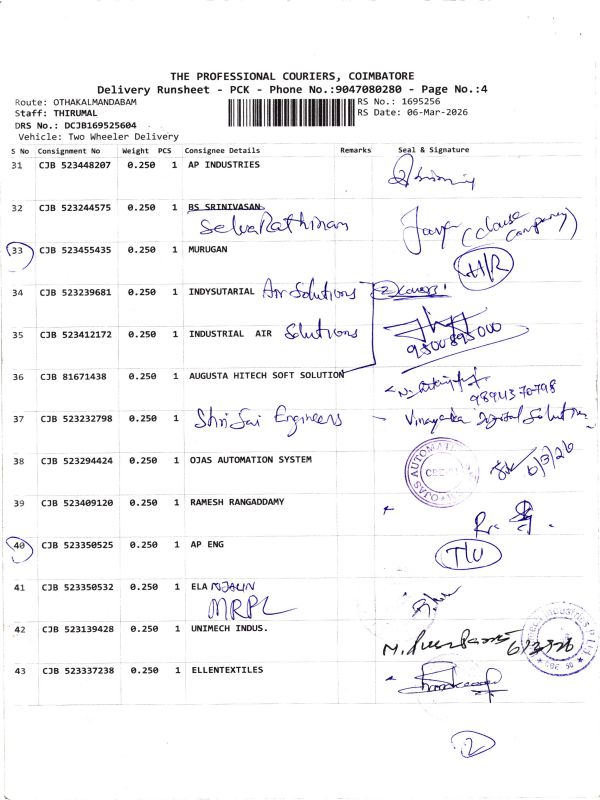 THE PROFESSIONAL COURIERS, COIMBATORE
Delivery Runsheet - PCK - Phone No.:9047080280 - Page No.:4
Route: OTHAKALMANDABAM RS No.: 1695256
Staff: THIRUMAL RS Date: 06-Mar-2026
DRS No.: DCJB169525604
Vehicle: Two Wheeler Delivery
S No Consignment No Weight PCS Consignee Details Remarks Seal & Signature
31 CJB 523448207 0.250 1 AP INDUSTRIES
32 CJB 523244575 0.250 1 BS SRINIVASAN
SelvaRathinam
33 CJB 523455435 0.250 1 MURUGAN
H/R
34 CJB 523239681 0.250 1 INDYSUTARIAL Air Solutions
35 CJB 523412172 0.250 1 INDUSTRIAL AIR Solutions
9500895000
36 CJB 81671438 0.250 1 AUGUSTA HITECH SOFT SOLUTION
9894370798
37 CJB 523232798 0.250 1 Shri Sai Engineers - Vinayaka Digital Solution
38 CJB 523294424 0.250 1 OJAS AUTOMATION SYSTEM
6/3/26
39 CJB 523409120 0.250 1 RAMESH RANGADDAMY
40 CJB 523350525 0.250 1 AP ENG
41 CJB 523350532 0.250 1 ELA
MRPL
42 CJB 523139428 0.250 1 UNIMECH INDUS.
43 CJB 523337238 0.250 1 ELLENTEXTILES
2